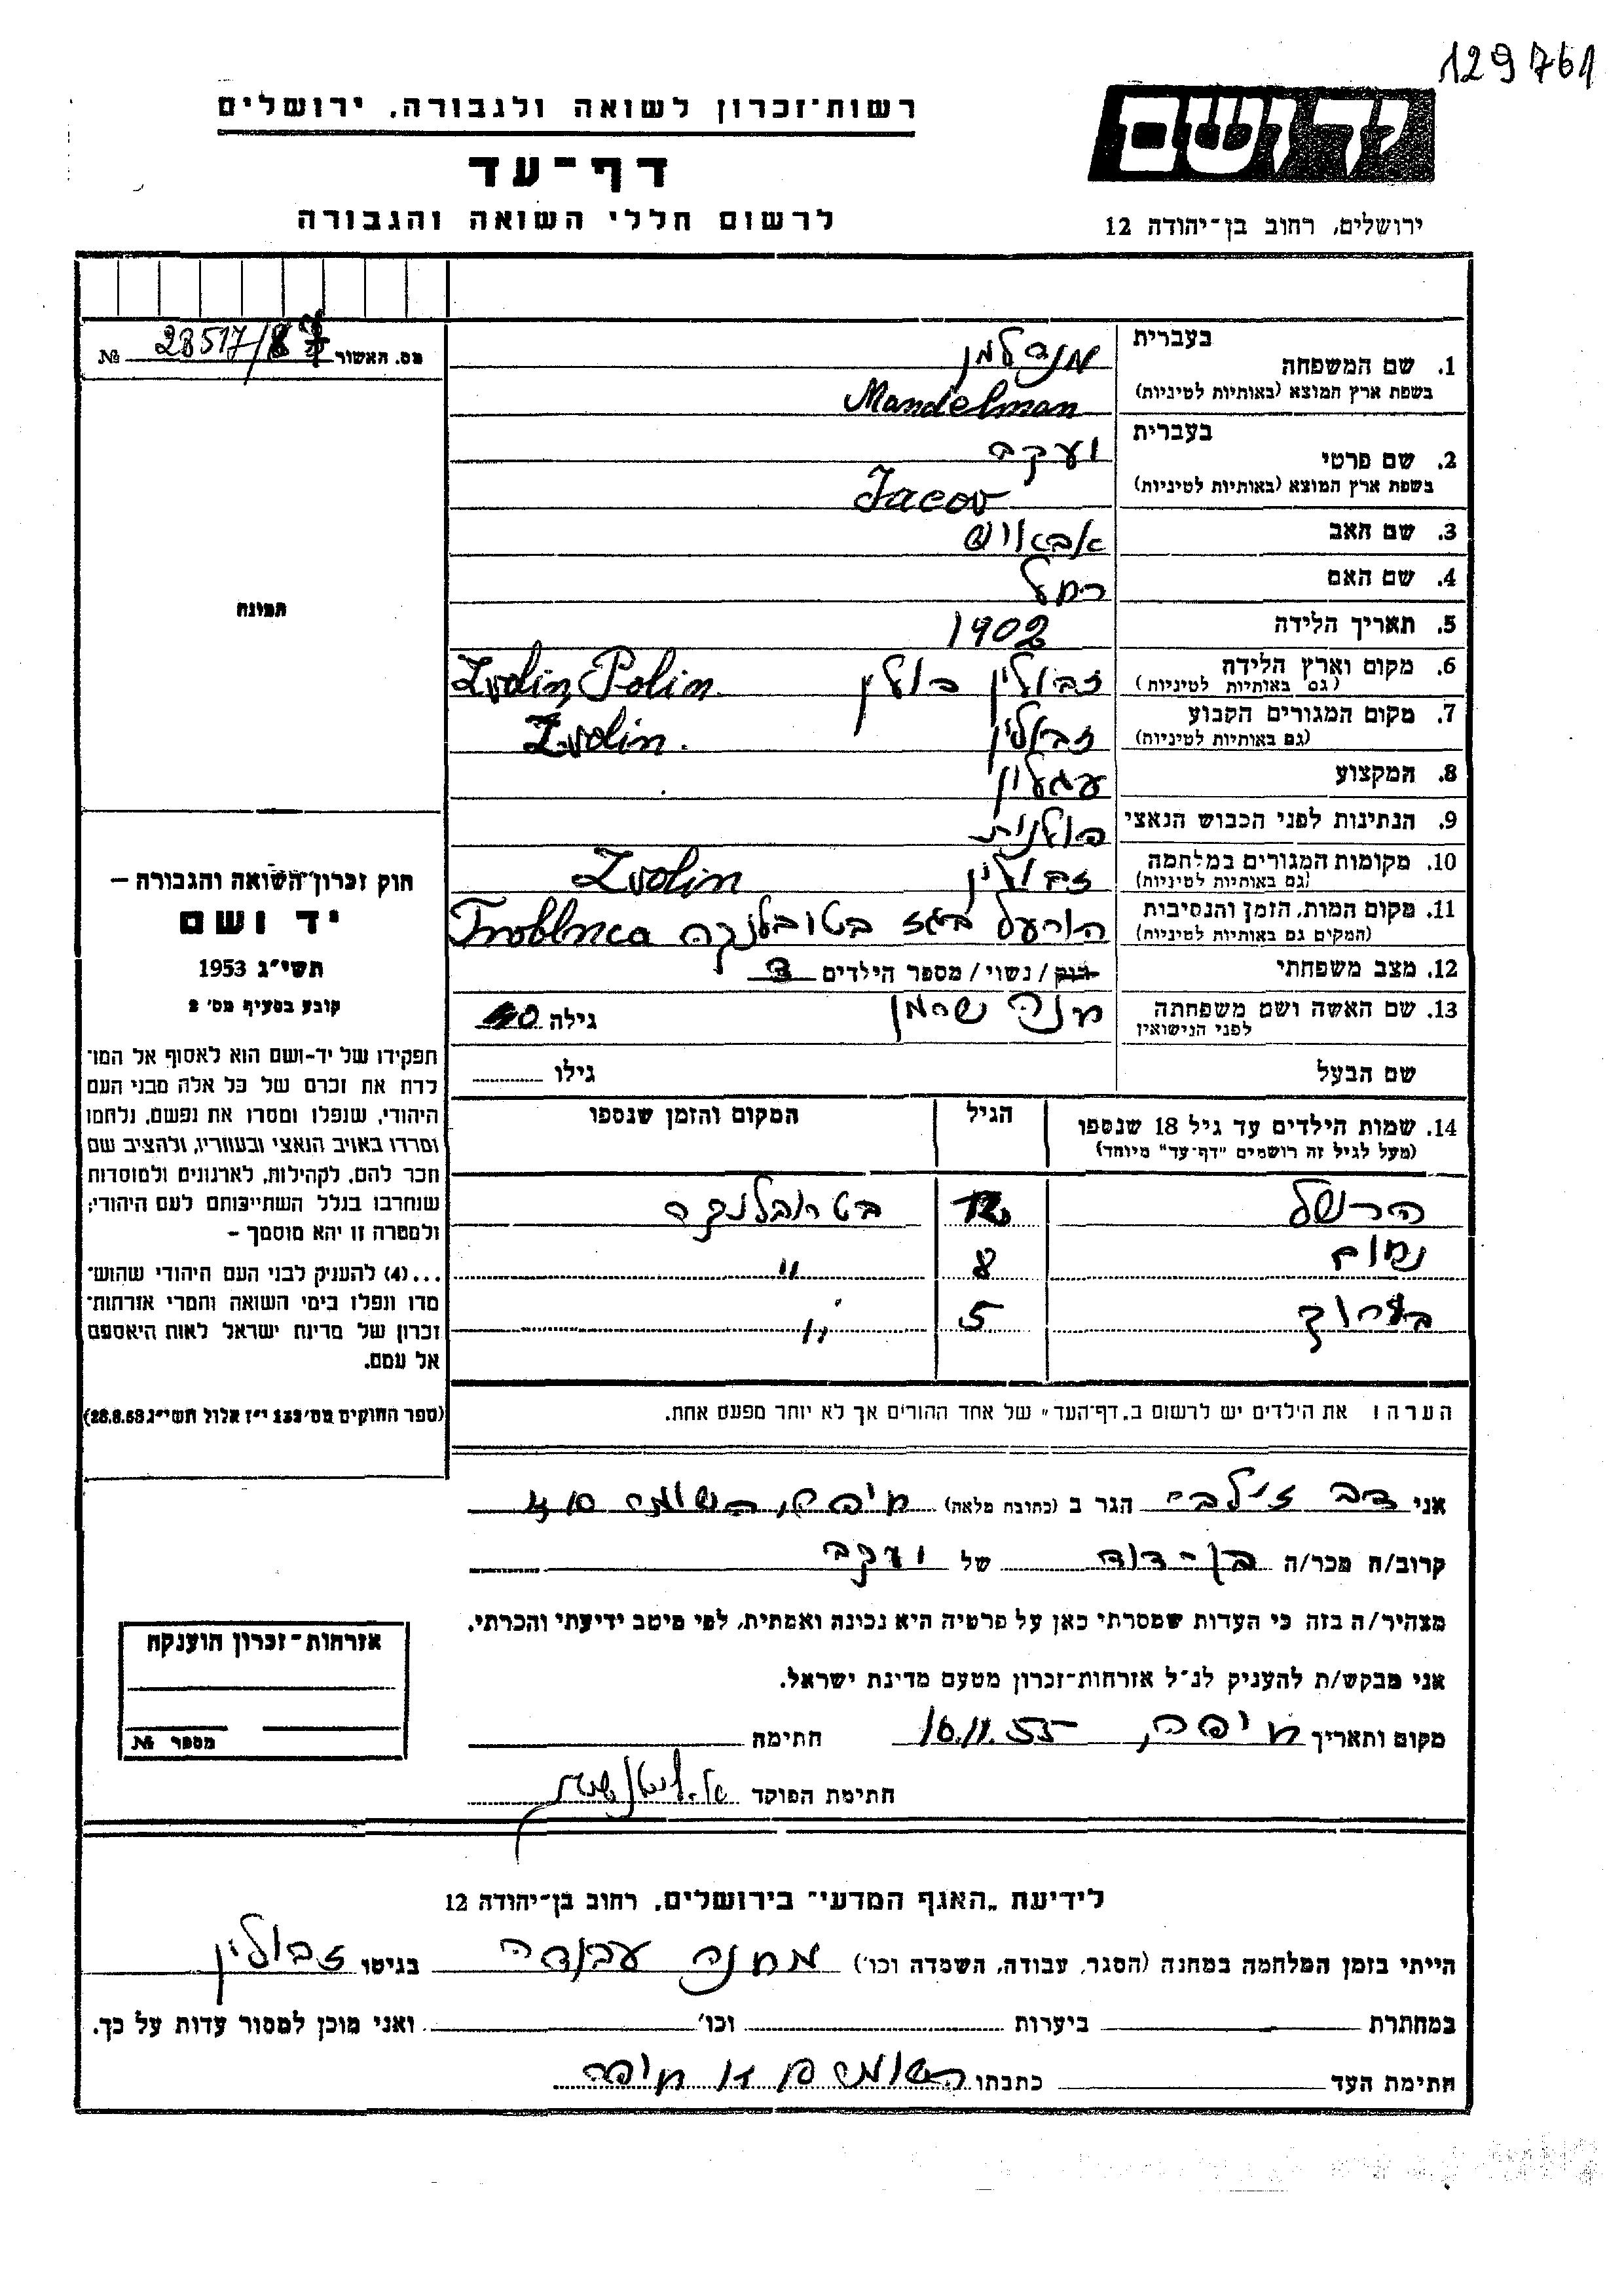 129761
רשות־זכרון לשואה ולגבורה, ירושלים
יד ושם
דף־עד
לרשום חללי השואה והגבורה
ירושלים, רחוב בן־יהודה 12
מס. האשור № 28517/87
1. שם המשפחה
בעברית מנדלמן
בשפת ארץ המוצא (באותיות לטיניות) Mandelman
2. שם פרטי
בעברית יעקב
בשפת ארץ המוצא (באותיות לטיניות) Jacov
3. שם האב
4. שם האם רחל
5. תאריך הלידה 1902
6. מקום וארץ הלידה זבולין פולין Zvolin, Polin.
(גם באותיות לטיניות)
7. מקום המגורים הקבוע זבולין Zvolin.
(גם באותיות לטיניות)
8. המקצוע עגלון
9. הנתינות לפני הכבוש הנאצי פולנית
10. מקומות המגורים במלחמה זבולין Zvolin
(גם באותיות לטיניות)
11. מקום המות, הזמן והנסיבות הורעל בגז בטובלנקה Troblnca
(המקום גם באותיות לטיניות)
12. מצב משפחתי רווק / נשוי / מספר הילדים 3
13. שם האשה ושם משפחתה חנה גילה 40
לפני הנישואין
שם הבעל גילו
14. שמות הילדים עד גיל 18 שנספו הגיל המקום והזמן שנספו
(מעל לגיל זה רושמים "דף־עד" מיוחד)
הרשל 12 בטרובלנקה
נחום 8 "
ברוך 5 "
הערה: את הילדים יש לרשום ב„דף־העד" של אחד ההורים אך לא יותר מפעם אחת.
תמונה
חוק זכרון־השואה והגבורה –
יד ושם
תשי"ג 1953
קובע בסעיף מס' 2
תפקידו של יד-ושם הוא לאסוף אל המו־
לדת את זכרם של כל אלה מבני העם
היהודי, שנפלו ומסרו את נפשם, נלחמו
ומרדו באויב הנאצי ובעוזריו, ולהציב שם
וזכר להם, לקהילות, לארגונים ולמוסדות
שנחרבו בגלל השתייכותם לעם היהודי;
ולמטרה זו יהא מוסמך –
...(4) להעניק לבני העם היהודי שהוש־
מדו ונפלו בימי השואה והמרי אזרחות־
זכרון של מדינת ישראל לאות היאספם
אל עמם.
(ספר החוקים מס' 132 י"ז אלול תשי"ג 28.8.53)
אני דב זילבר הגר ב (כתובת מלאה) חיפה,
קרוב/ה מכר/ה בן-דוד של יעקב
מצהיר/ה בזה כי העדות שמסרתי כאן על פרטיה היא נכונה ואמתית, לפי מיטב ידיעתי והכרתי.
אני מבקש/ת להעניק לנ"ל אזרחות־זכרון מטעם מדינת ישראל.
מקום ותאריך חיפה, 10.11.55 חתימה
חתימת הפוקד
אזרחות־זכרון הוענקה
מספר №
לידיעת „האגף המדעי" בירושלים, רחוב בן־יהודה 12
הייתי בזמן המלחמה במחנה (הסגר, עבודה, השמדה וכו') מחנה עבודה בגיטו זבולין
במחתרת ביערות וכו' ואני מוכן למסור עדות על כך.
חתימת העד כתבתו חיפה